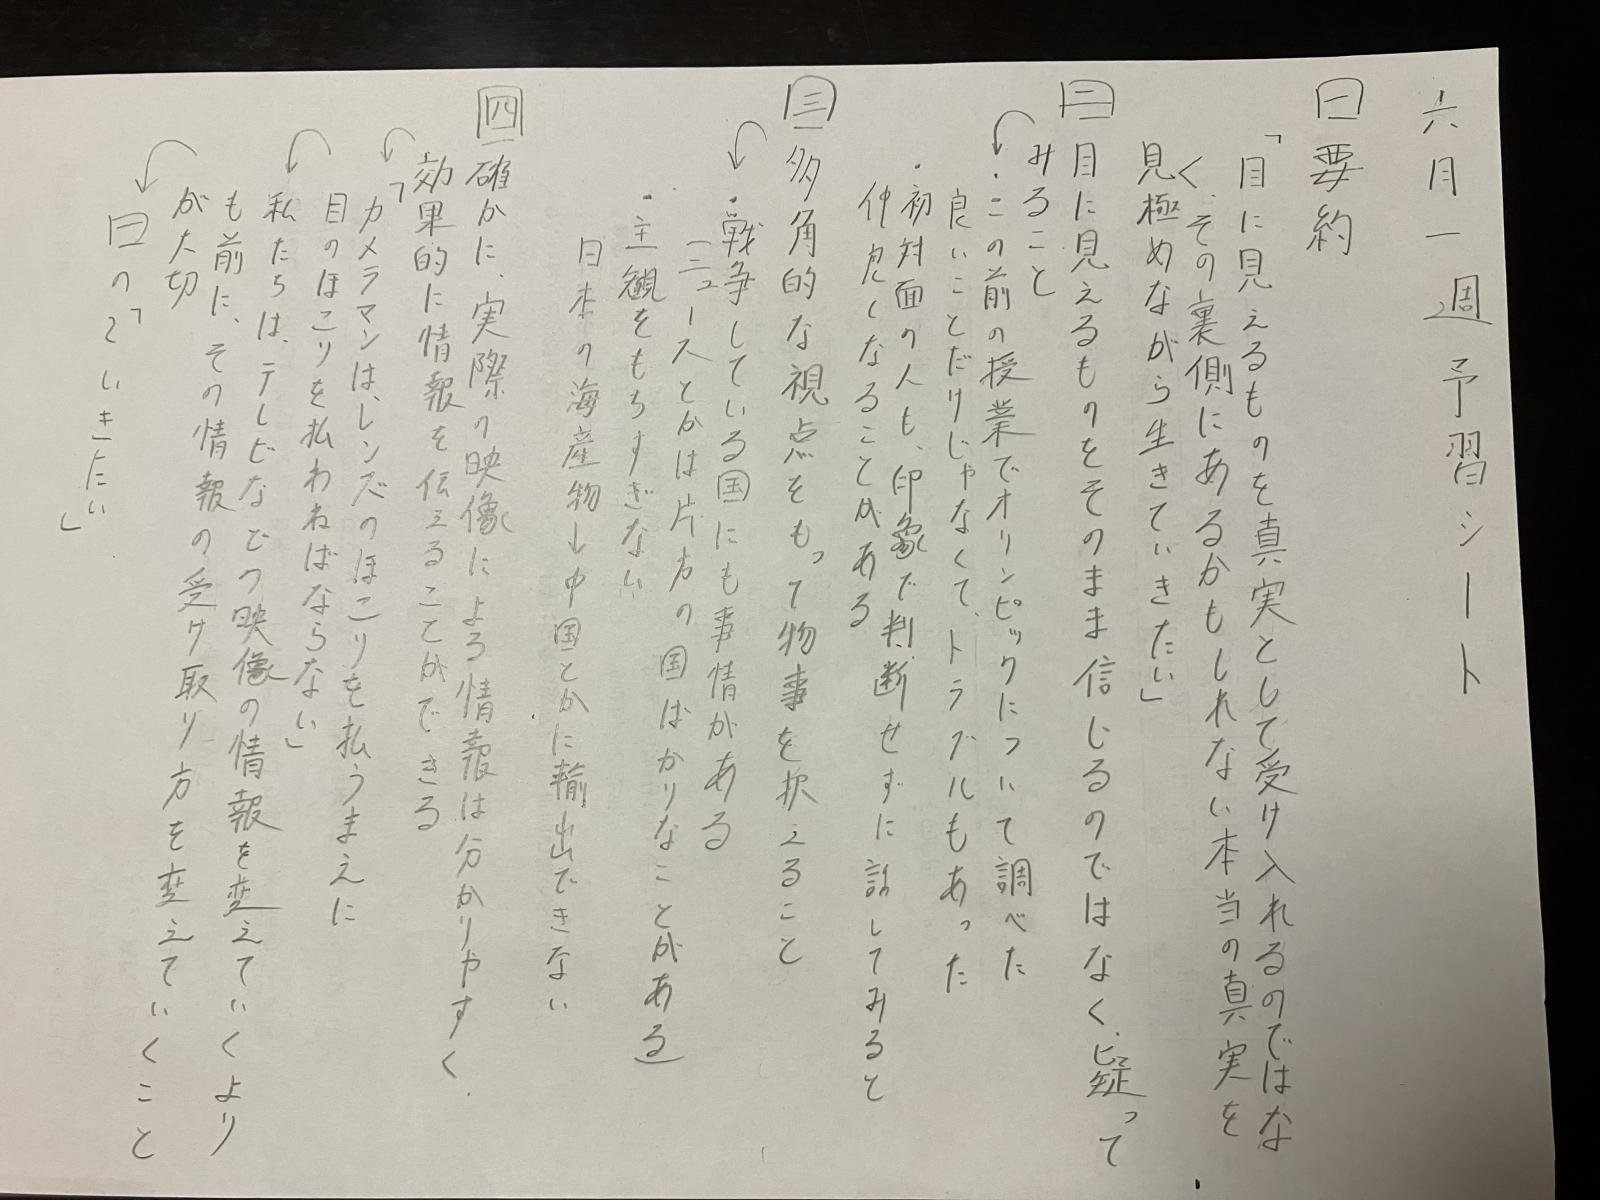 六月一週予習シート
一 要約
「目に見えるものを真実として受け入れるのではな
く、その裏側にあるかもしれない本当の真実を
見極めながら生きていきたい」
二 目に見えるものをそのまま信じるのではなく、疑って
みること
・この前の授業でオリンピックについて調べた
良いことだけじゃなくて、トラブルもあった
・初対面の人も、印象で判断せずに話してみると
仲良くなることがある
三 多角的な視点をもって物事を捉えること
・戦争している国にも事情がある
(ニュースとかは片方の国ばかりなことがある)
・主観をもちすぎない
日本の海産物→中国とかに輸出できない
四 確かに、実際の映像による情報は分かりやすく、
効果的に情報を伝えることができる
「カメラマンは、レンズのほこりを払うまえに
目のほこりを払わねばならない」
私たちは、テレビなどの映像の情報を変えていくより
も前に、その情報の受け取り方を変えていくこと
が大切
一の「〜いきたい」